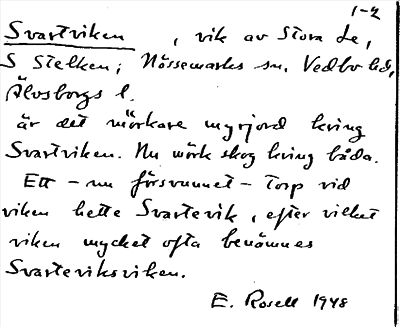 1-2
Svartviken , vik av Stora Le,
S Stelken; Nössemarks sn. Vedbo hd,
Älvsborgs l.
är det mörkare myrjord kring
Svartviken. Nu mörk skog kring båda.
Ett - nu försvunnet - Torp vid
viken hette Svartevik, efter vilket
viken mycket ofta benämnes
Svarteviksviken.
E. Rosell 1948